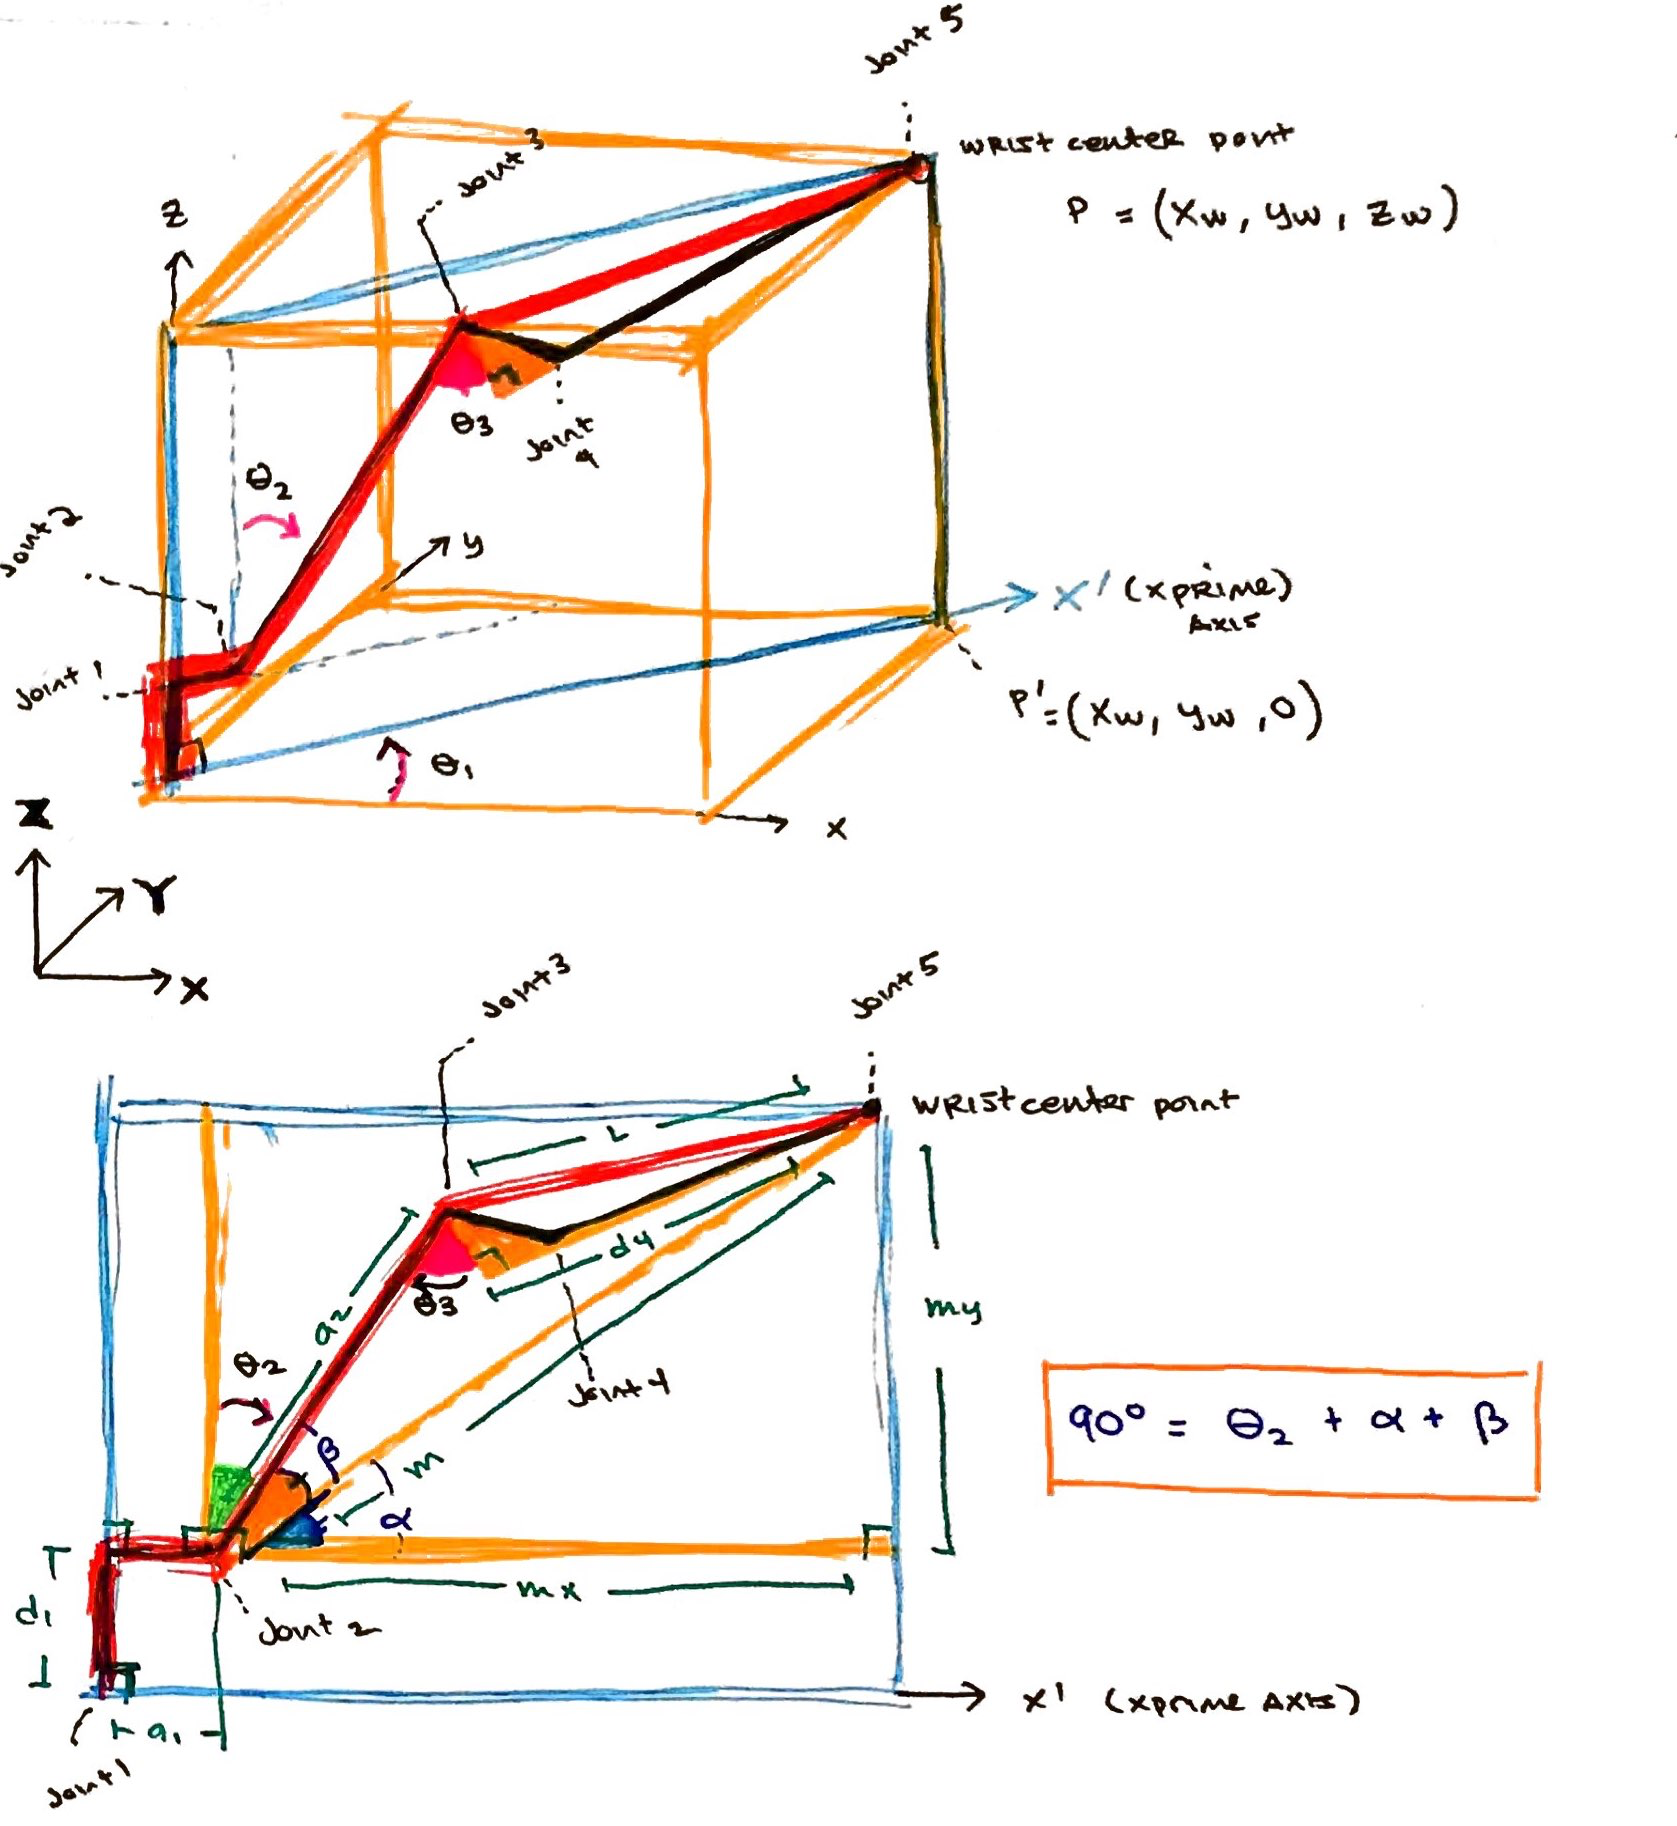 Joint 5
WRIST center point
P = (Xw, yw, Zw)
Joint 3
Z
θ3
Joint
4
θ2
Joint 2
y
X' (XPRIME)
AXIS
Joint 1
P' = (Xw, yw, 0)
θ1
x
Z
Y
X
Joint 3
Joint 5
WRIST center point
L
d4
θ3
my
a2
θ2
Joint 4
90° = θ2 + α + β
β
m
α
mx
d1
Joint 2
X' (XPRIME AXIS)
a1
Joint 1